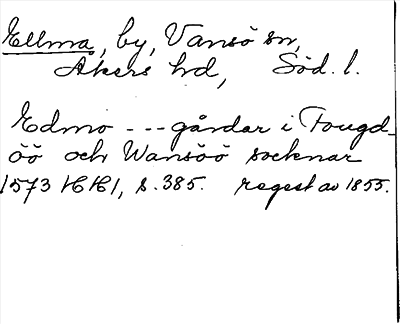 Ellma, by, Vansö sn,
Åkers hd, Söd. l.
Edmo --- gårdar i Fougd-
öö och Wansöö socknar
1573 HH1, s. 385. regest av 1855.